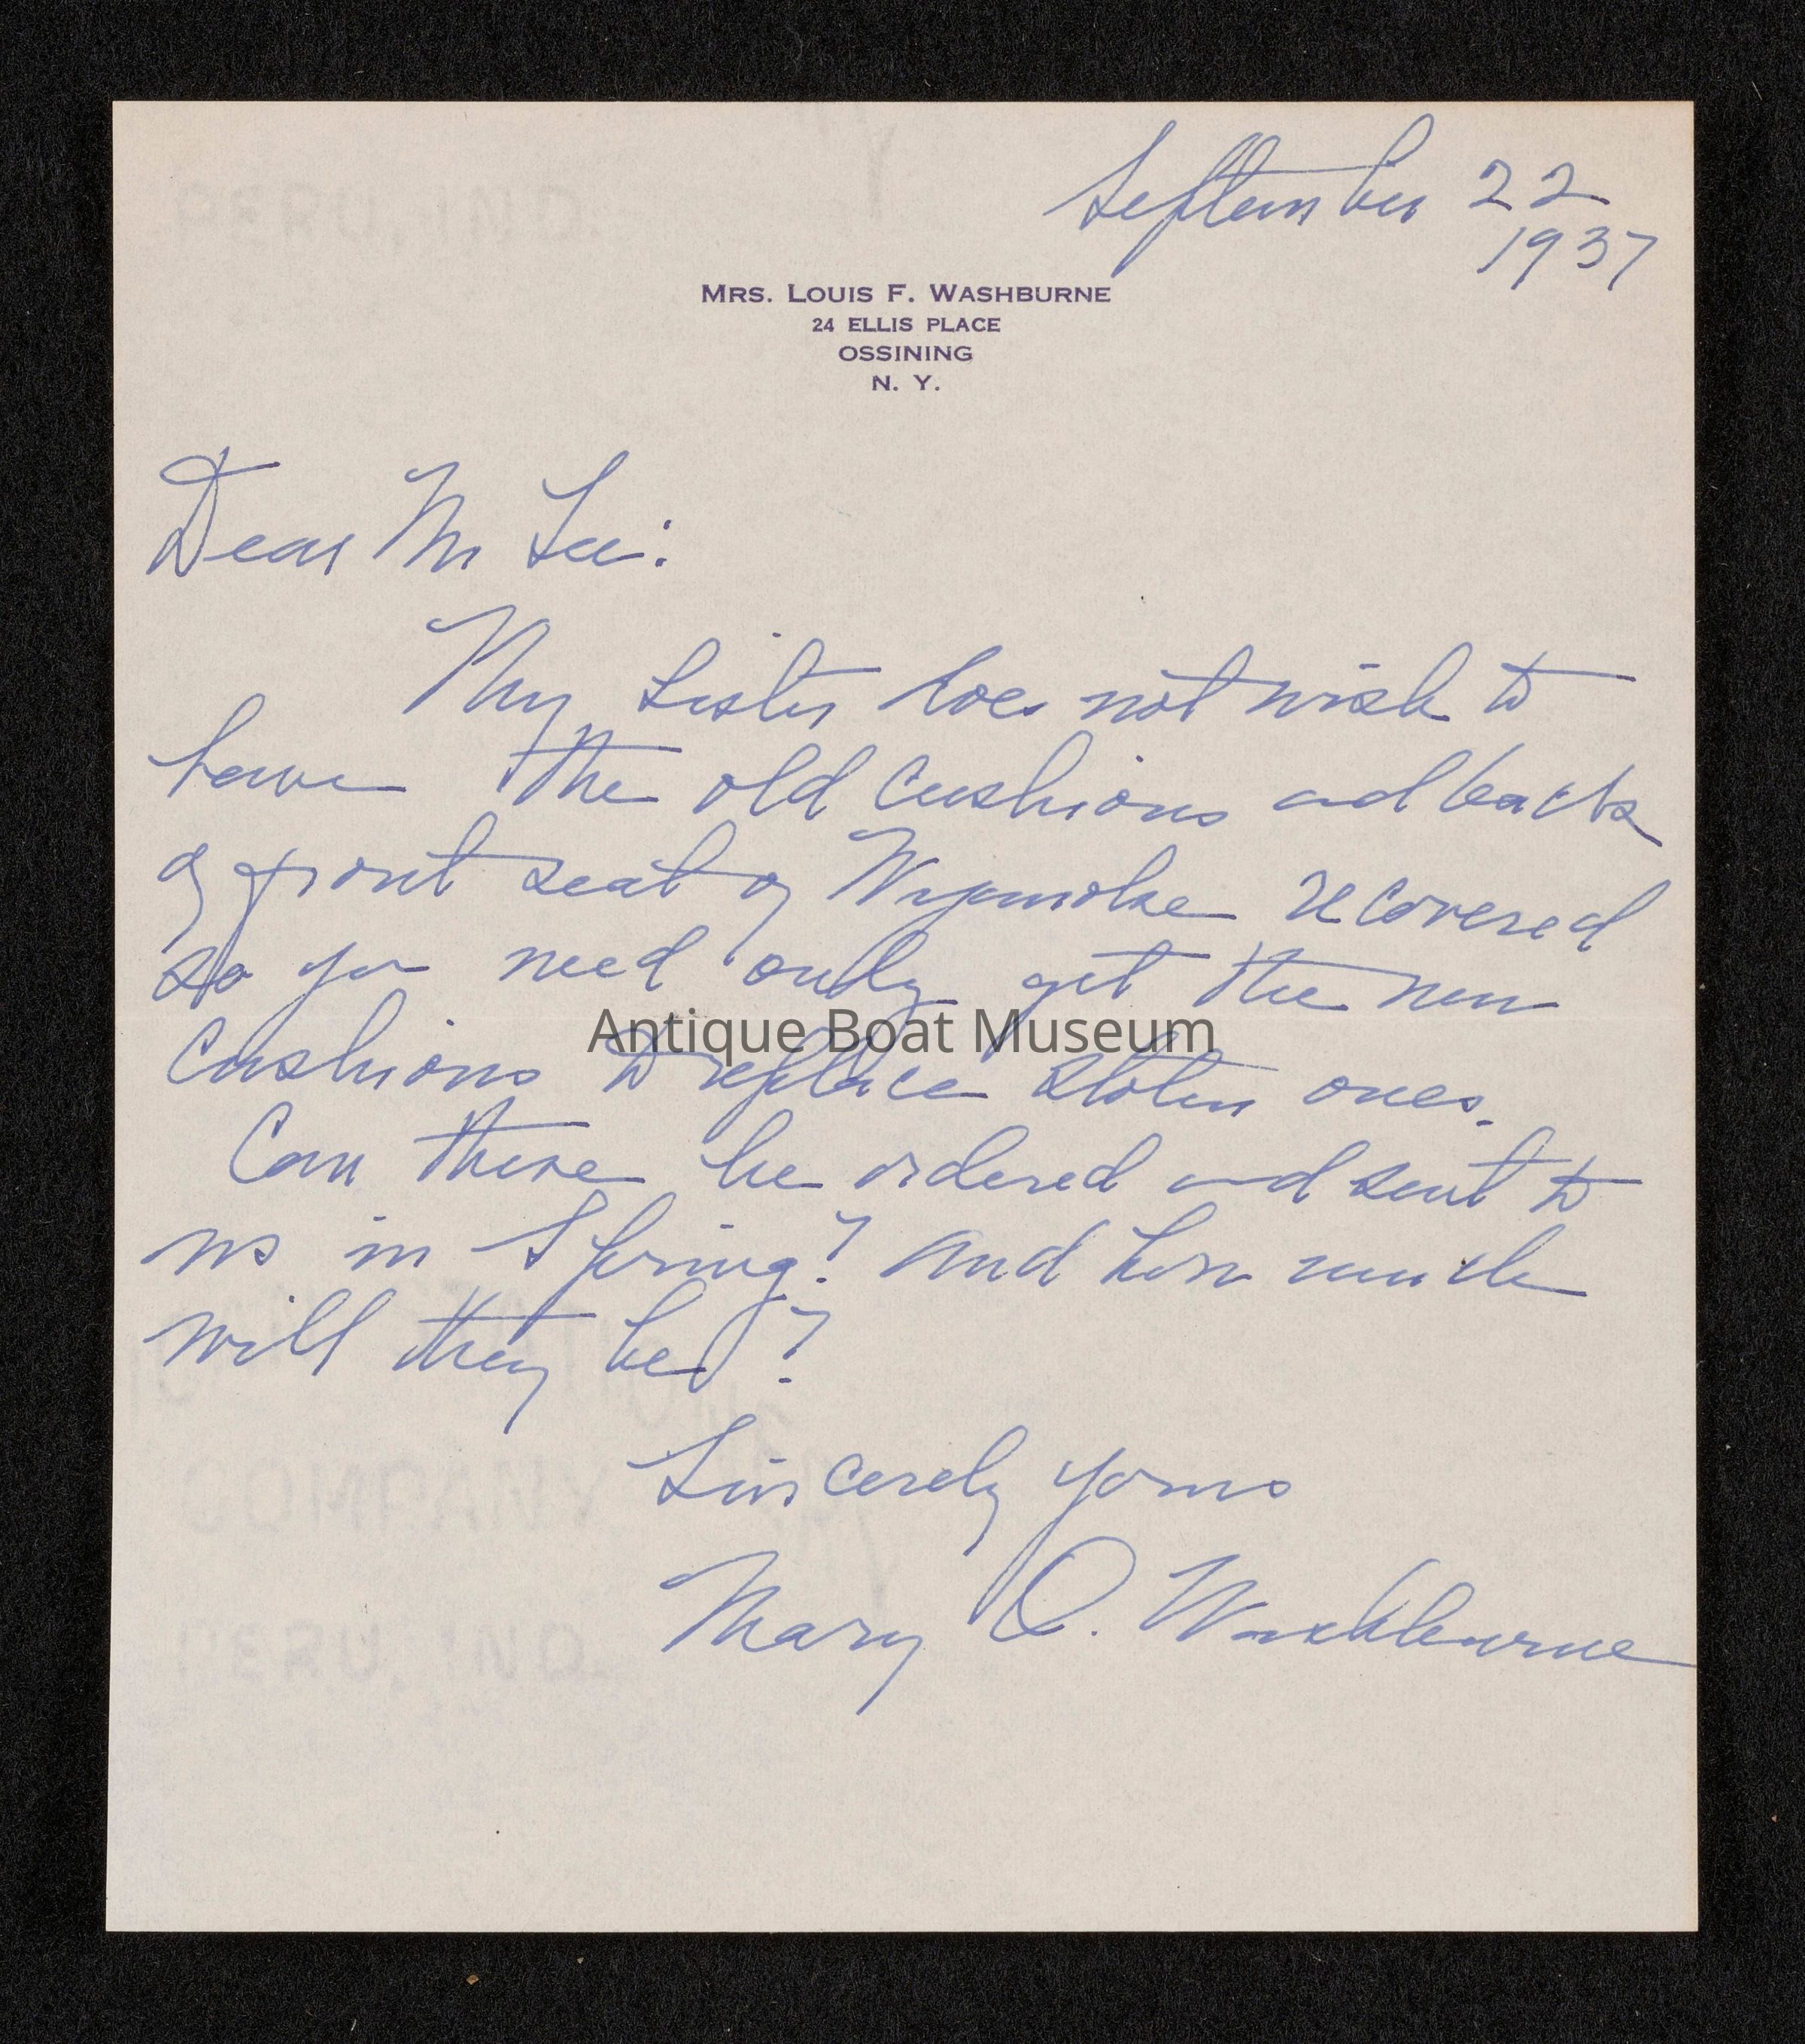 September 22
1937
MRS. LOUIS F. WASHBURNE
24 ELLIS PLACE
OSSINING
N. Y.
Dear Mr Lee:
My sister does not wish to
have the old cushions and backs
of front seat of recovered
so you need only get the new
Antique Boat Museum
cushions to replace stolen ones.
Can these be ordered and sent to
us in Spring? And how much
will they be?
Sincerely yours
Mary O. Washburne
PERU, IND.
COMPANY
PERU, IND.